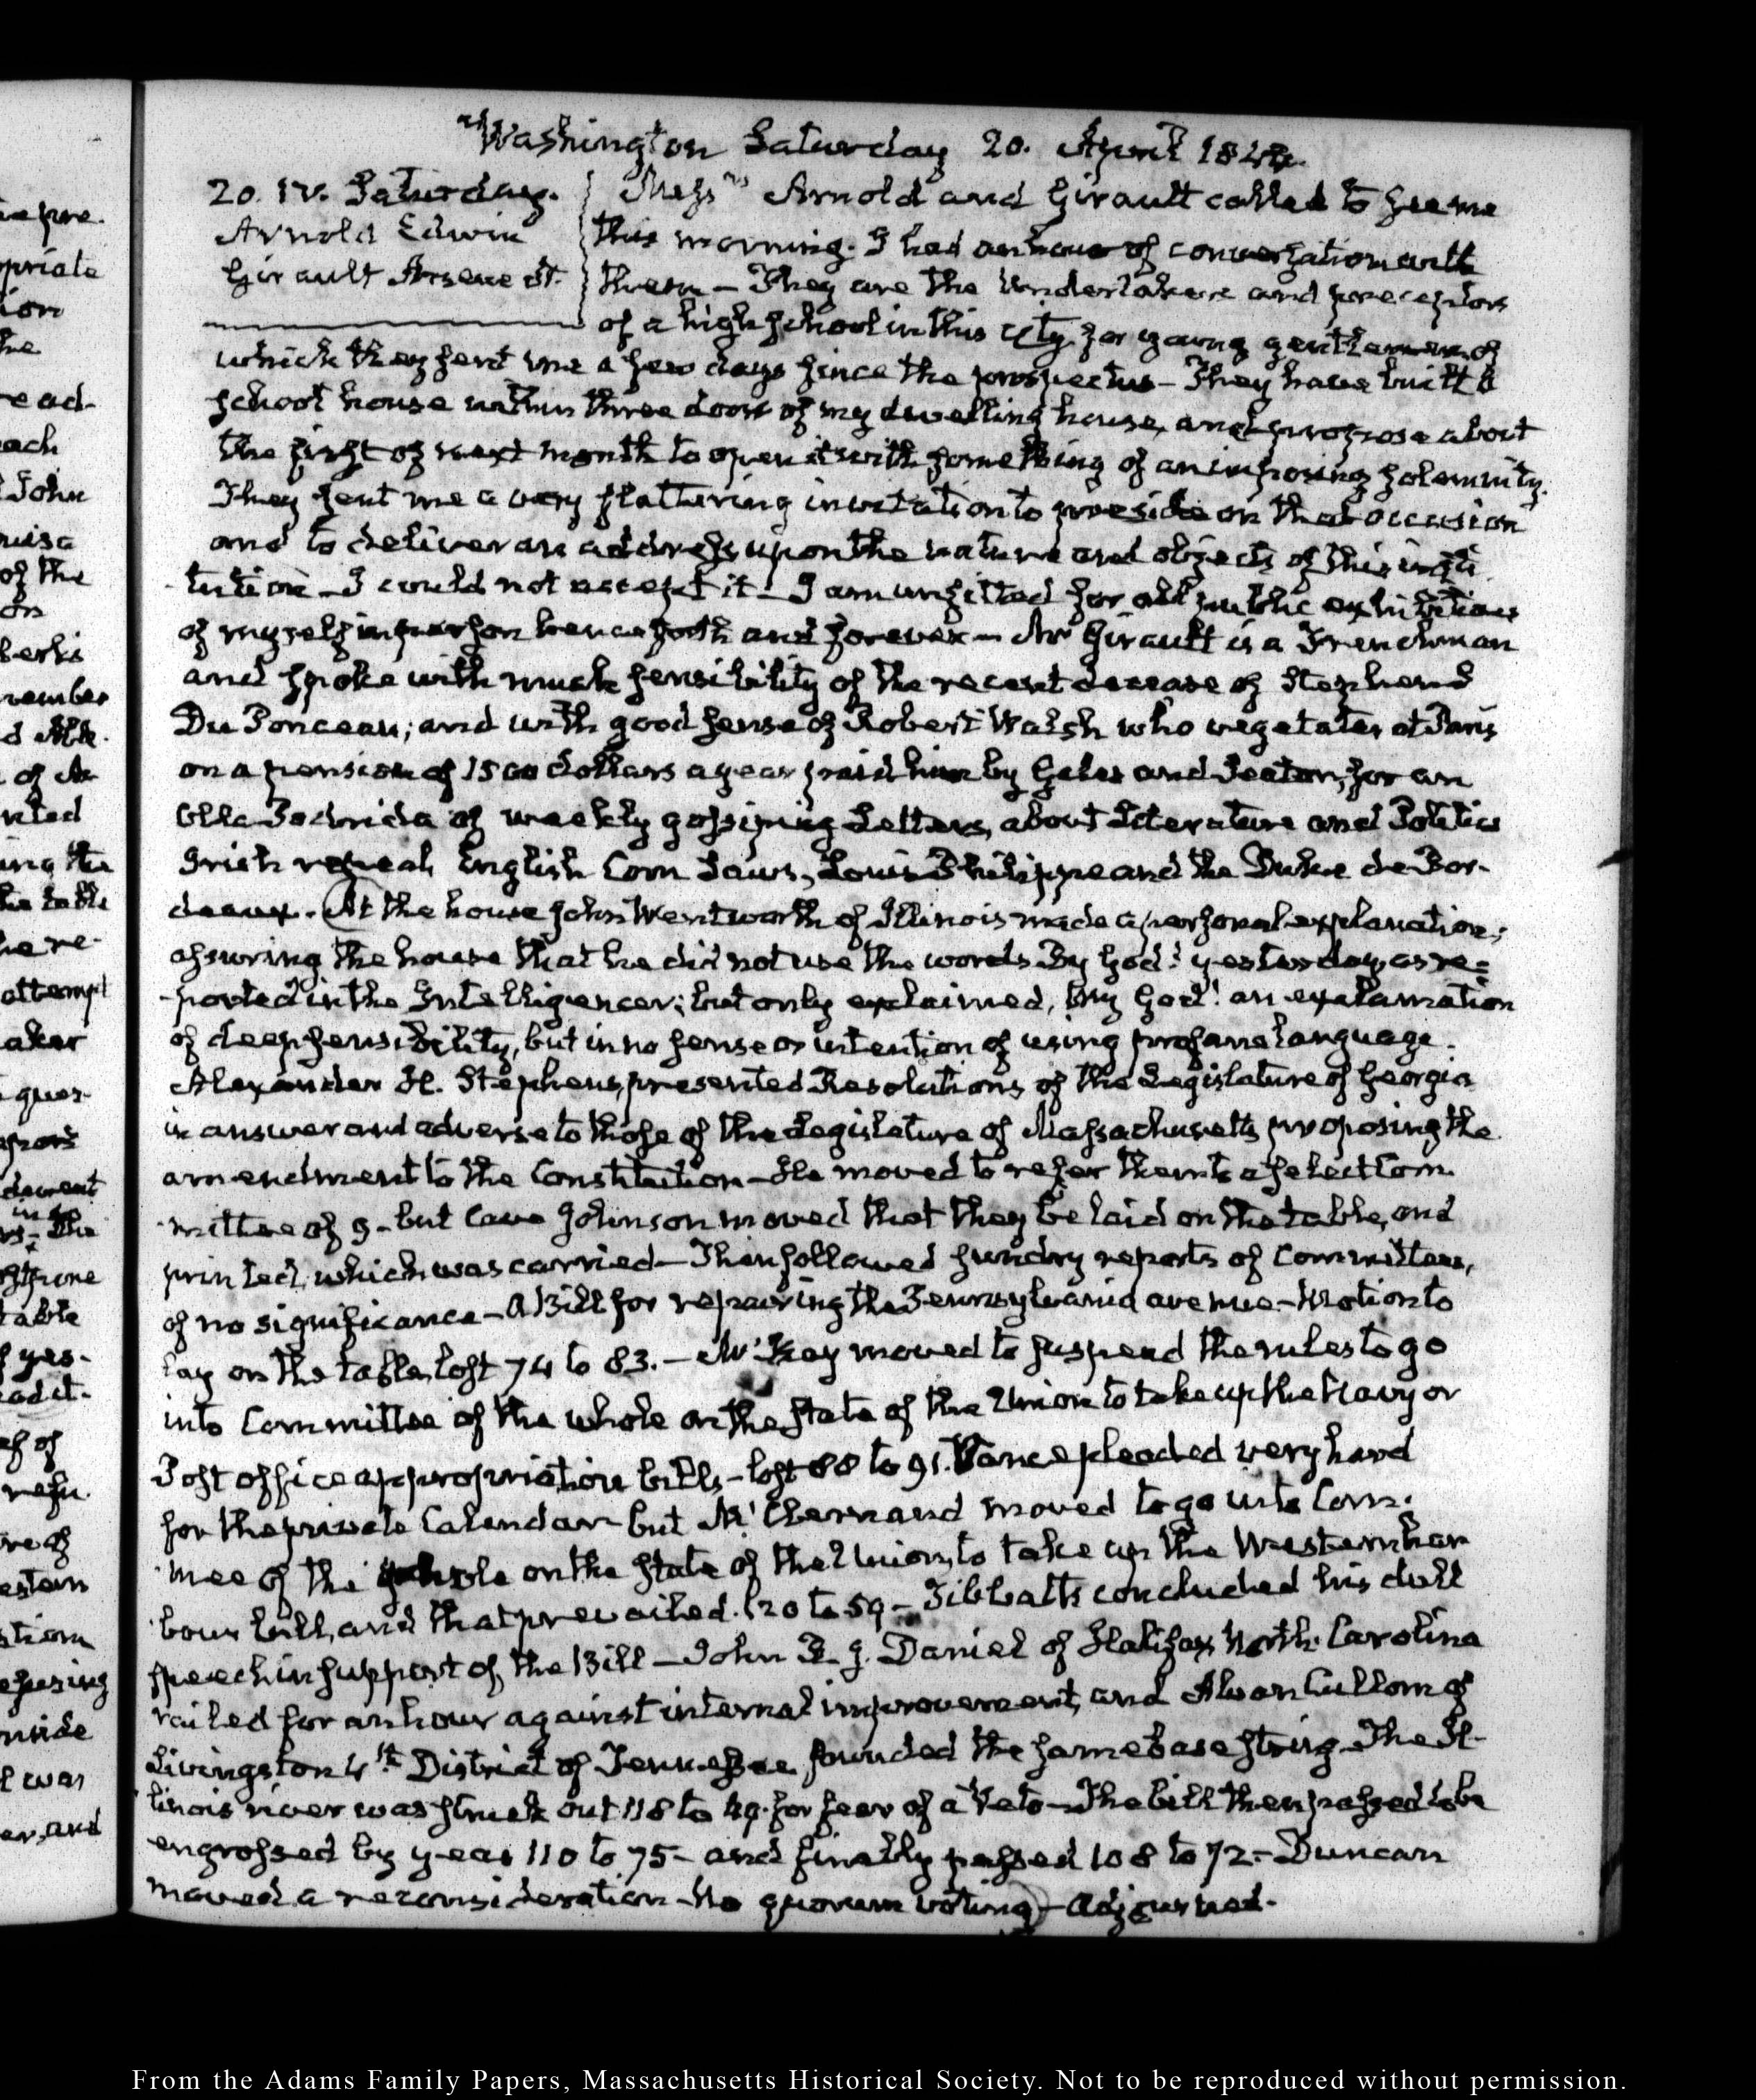 Washington Saturday 20. April 1844.
20. IV. Saturday.
Arnold Edwin
Girault Arsene
Messrs Arnold and Girault called to see me
this morning. I had an hour of conversation with
them — They are the Undertakers and preceptors
of a high school in this City for young gentlemen of
which they sent me a few days since the prospectus — They have built a
school house within three doors of my dwelling house, and propose about
the first of next month to open it with something of an imposing solemnity.
They sent me a very flattering invitation to preside on that occasion
and to deliver an address upon the nature and objects of this insti
tution — I could not accept it — I am unfitted for all public exhibitions
of myself in person henceforth and forever — Mr Girault is a Frenchman
and spoke with much sensibility of the recent decease of Stephen S
Du Ponceau; and with good sense of Robert Walsh who vegetates at Paris
on a pension of 1500 dollars a year paid him by Gales and Seaton, for an
Olla Podrida of weekly gossiping Letters, about Literature and Politics
Irish repeal, English Corn Laws, Louis Philippe and the Duke de Bor-
deaux. At the house John Wentworth of Illinois made a personal explanation;
assuring the house that he did not use the words By God! yesterday, as re=
-ported in the Intelligencer; but only exclaimed, My God! an exclamation
of deep sensibility, but in no sense or intention of using profane language.
Alexander H. Stephens, presented Resolutions of the Legislature of Georgia
in answer and adverse to those of the Legislature of Massachusetts proposing the
amendment to the Constitution — He moved to refer them to a select Com-
mittee of 9 — but Cave Johnson moved that they be laid on the table, and
printed, which was carried — Then followed sundry reports of Committees,
of no significance — A Bill for repairing the Pennsylvania avenue — Motion to
lay on the table, lost 74 to 83. — McKay moved to suspend the rules to go
into Committee of the whole on the state of the Union to take up the Navy or
Post office appropriation bills — lost 88 to 91. Vance pleaded very hard
for the private Calendar — but McClernand moved to go into Com-
mee of the whole on the state of the Union, to take up the Western har
bour bill, and that prevailed. 120 to 59 — Tibbatts concluded his dull
speech in support of the Bill — John R. J. Daniel of Halifax North Carolina
railed for an hour against internal improvement, and Alvan Cullom of
Livingston 4th District of Tennessee sounded the same base string. The Il-
linois river was struck out 118 to 49. for fear of a Veto — The bill then passed to be
engrossed by yeas 110 to 75 — and finally passed 108 to 72 — Duncan
moved a reconsideration — No quorum voting — adjourned.
From the Adams Family Papers, Massachusetts Historical Society. Not to be reproduced without permission.